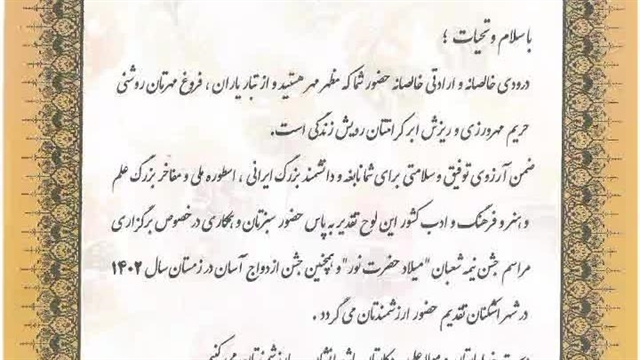 با سلام و تحیات ؛
درودی خالصانه و ارادتی خالصانه حضور شما که مظهر مهر هستید و از تبار یاران ، فروغ مهرتان روشنی
حریم مهرورزی و ریزش ابر کرامتتان رویش زندگی است.
ضمن آرزوی توفیق و سلامتی برای شما نابغه و دانشمند بزرگ ایرانی ، اسطوره ملی و مفاخر بزرگ علم
و هنر و فرهنگ و ادب کشور این لوح تقدیر به پاس حضور سبزتان و همکاری در خصوص برگزاری
مراسم جشن نیمه شعبان "میلاد حضرت نور" و همچنین جشن ازدواج آسان در زمستان سال ۱۴۰۲
در شهر اشکنان تقدیم حضور ارزشمندتان می گردد .